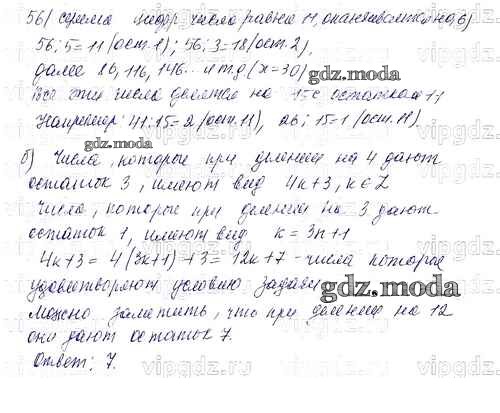 56 (сумма цифр числа равна 11, оканчивается на 6)
56:5=11 (ост.1); 56:3=18 (ост.2),
далее 86, 116, 146... и тд (x=30)
Все эти числа делятся на 15 с остатком 11
Например: 41:15=2 (ост.11), 26:15=1 (ост.11).
б) Числа, которые при делении на 4 дают
остаток 3, имеют вид 4k+3, k∈Z
Числа, которые при делении на 3 дают
остаток 1, имеют вид k=3n+1
4k+3=4(3k+1)+3=12k+7 - числа которые
удовлетворяют условию задачи
можно заметить, что при делении на 12
они дают остаток 7.
Ответ: 7.
gdz.moda
gdz.moda
gdz.moda
vipgdz.ru